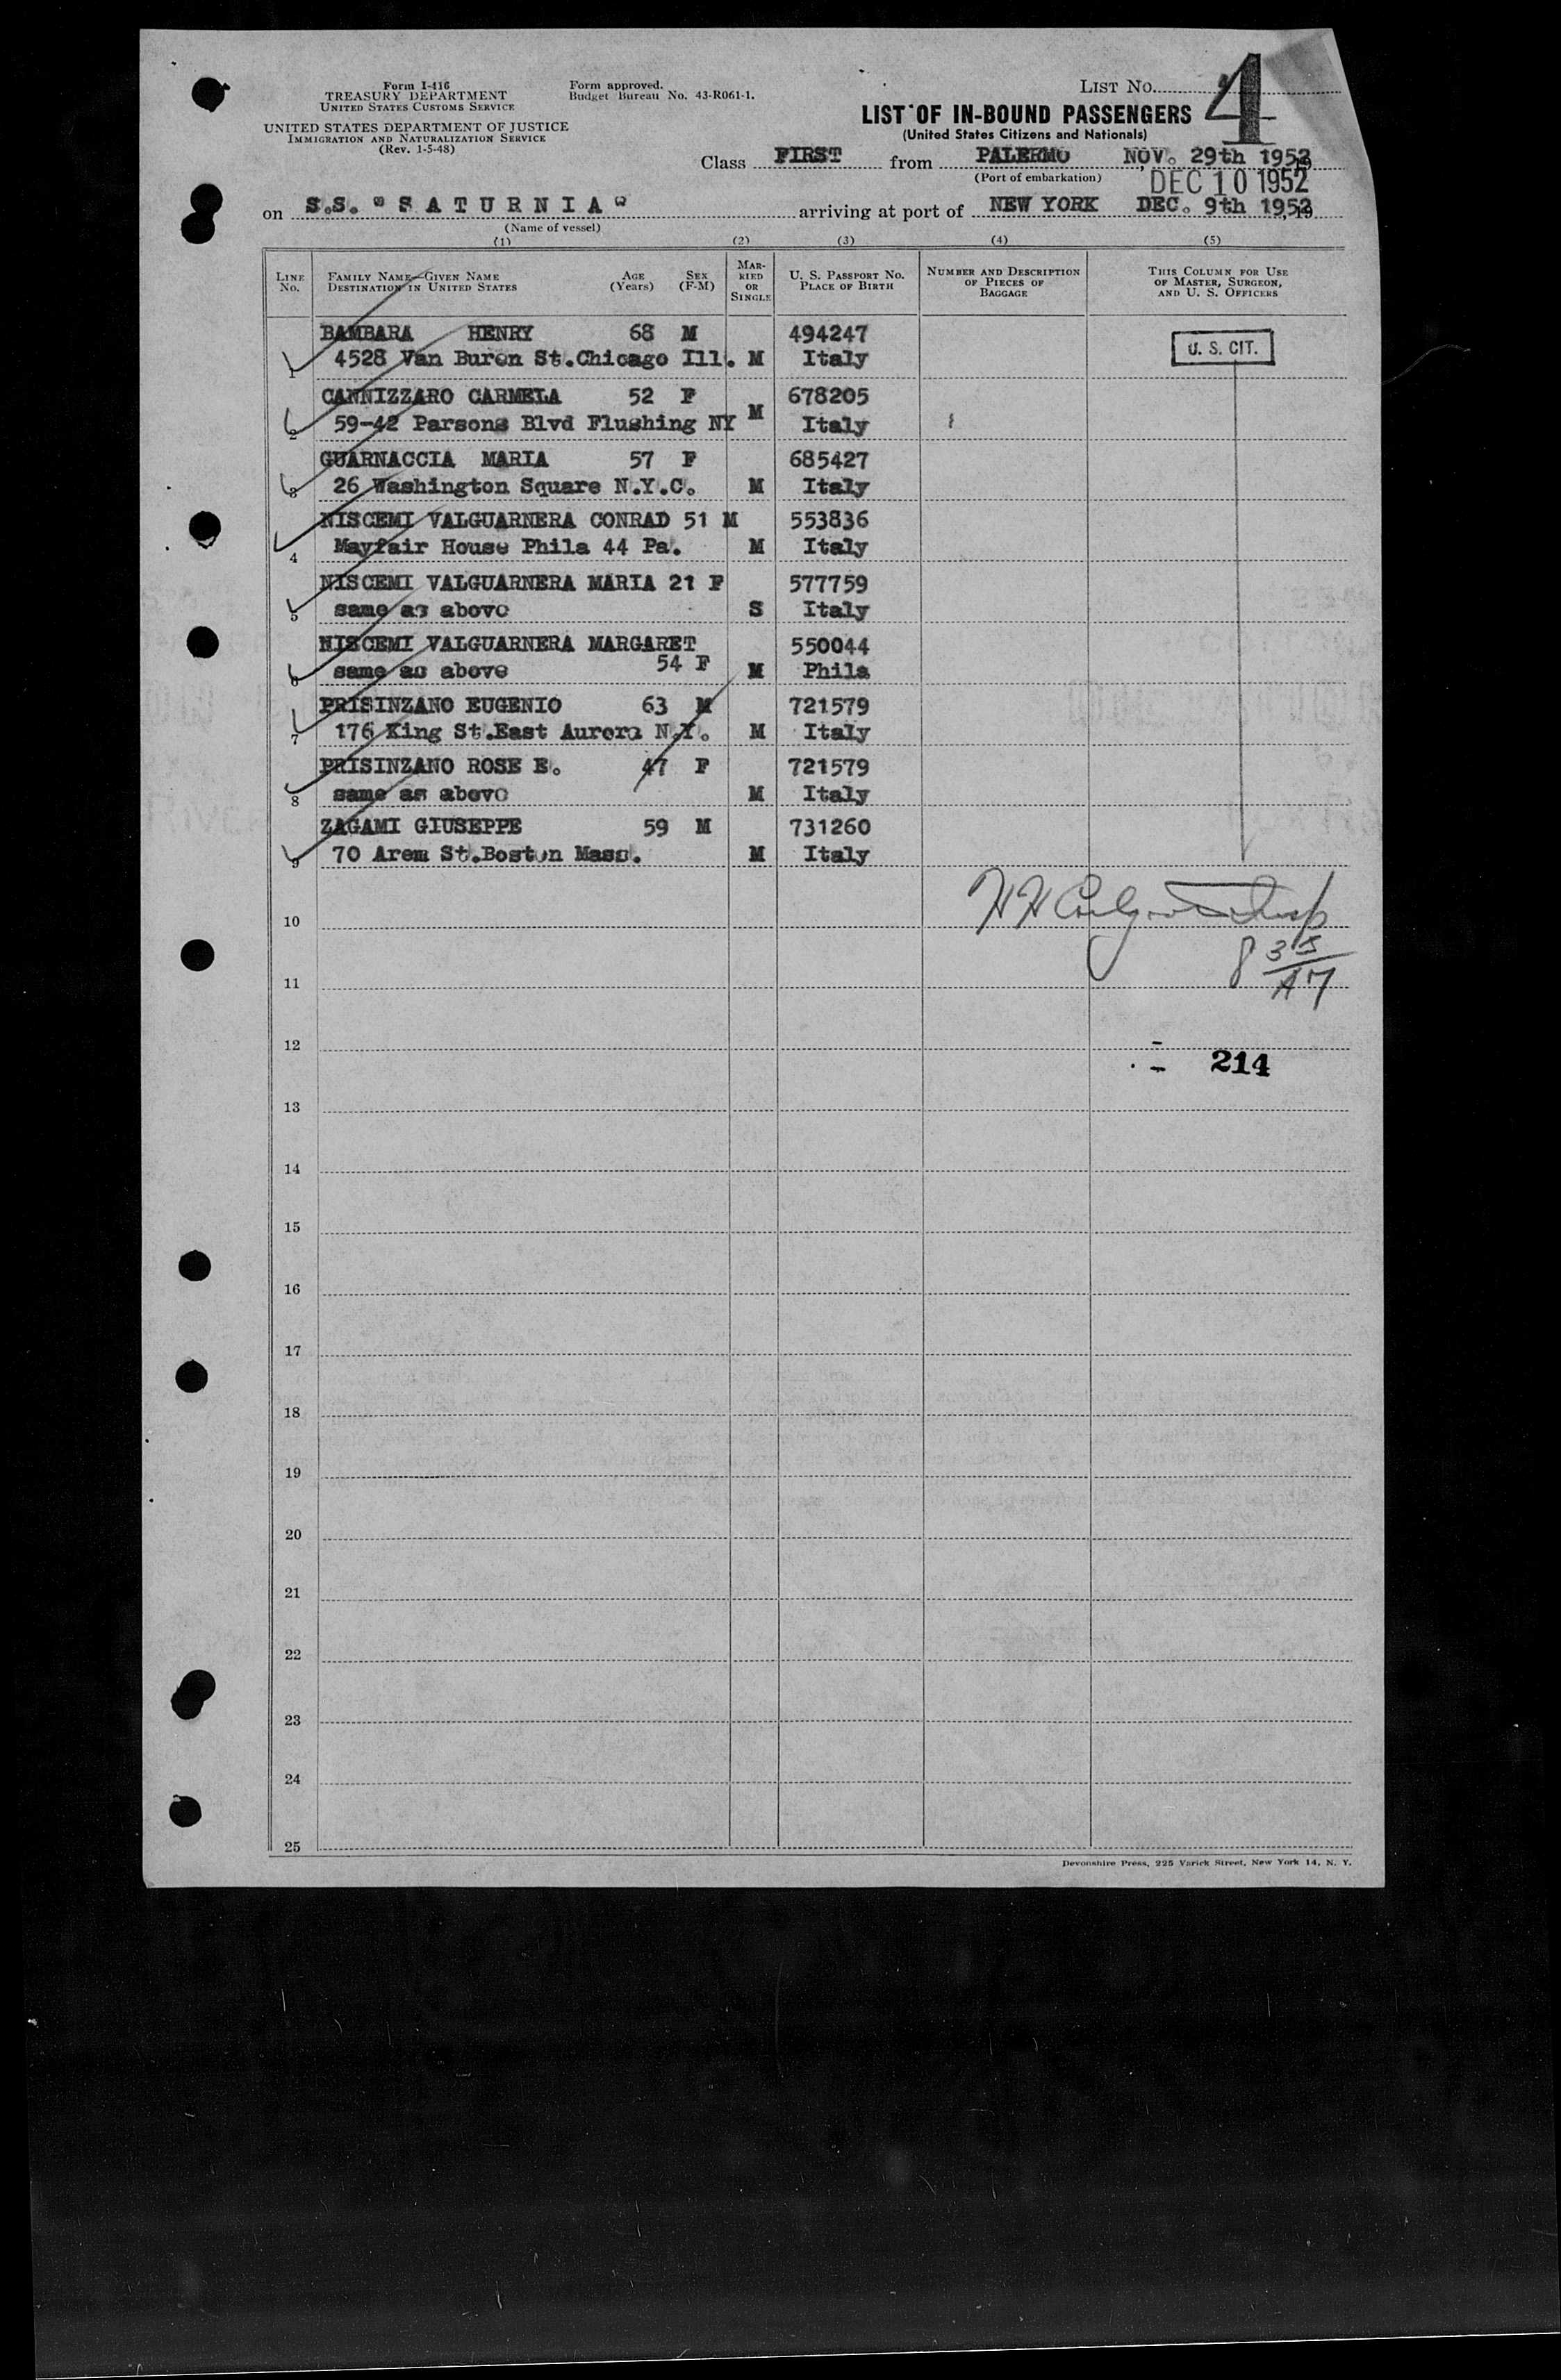 Form I-416
TREASURY DEPARTMENT
UNITED STATES CUSTOMS SERVICE
UNITED STATES DEPARTMENT OF JUSTICE
IMMIGRATION AND NATURALIZATION SERVICE
(Rev. 1-5-48)
Form approved.
Budget Bureau No. 43-R061-1.
LIST No. 4
LIST OF IN-BOUND PASSENGERS
(United States Citizens and Nationals)
Class FIRST from PALERMO NOV. 29th 1952
(Port of embarkation) DEC 10 1952
on S.S. "SATURNIA" arriving at port of NEW YORK DEC. 9th 1952
(Name of vessel)
(1) (2) (3) (4) (5)
LINE No. FAMILY NAME—GIVEN NAME DESTINATION IN UNITED STATES AGE (Years) SEX (F-M) MARRIED OR SINGLE U. S. PASSPORT NO. PLACE OF BIRTH NUMBER AND DESCRIPTION OF PIECES OF BAGGAGE THIS COLUMN FOR USE OF MASTER, SURGEON, AND U. S. OFFICERS
BAMBARA HENRY 68 M 494247
1 4528 Van Buren St.Chicago Ill. M Italy U. S. CIT.
CANNIZZARO CARMELA 52 F 678205
2 59-42 Parsons Blvd Flushing NY M Italy
GUARNACCIA MARIA 57 F 685427
3 26 Washington Square N.Y.C. M Italy
NISCEMI VALGUARNERA CONRAD 51 M 553836
4 Mayfair House Phila 44 Pa. M Italy
NISCEMI VALGUARNERA MARIA 21 F 577759
5 same as above S Italy
NISCEMI VALGUARNERA MARGARET 550044
6 same as above 54 F M Phila
PRISINZANO EUGENIO 63 M 721579
7 176 King St.East Aurora N.Y. M Italy
PRISINZANO ROSE E. 47 F 721579
8 same as above M Italy
ZAGAMI GIUSEPPE 59 M 731260
9 70 Arem St.Boston Mass. M Italy
10
11
12
214
13
14
15
16
17
18
19
20
21
22
23
24
25
Devonshire Press, 225 Varick Street, New York 14, N. Y.